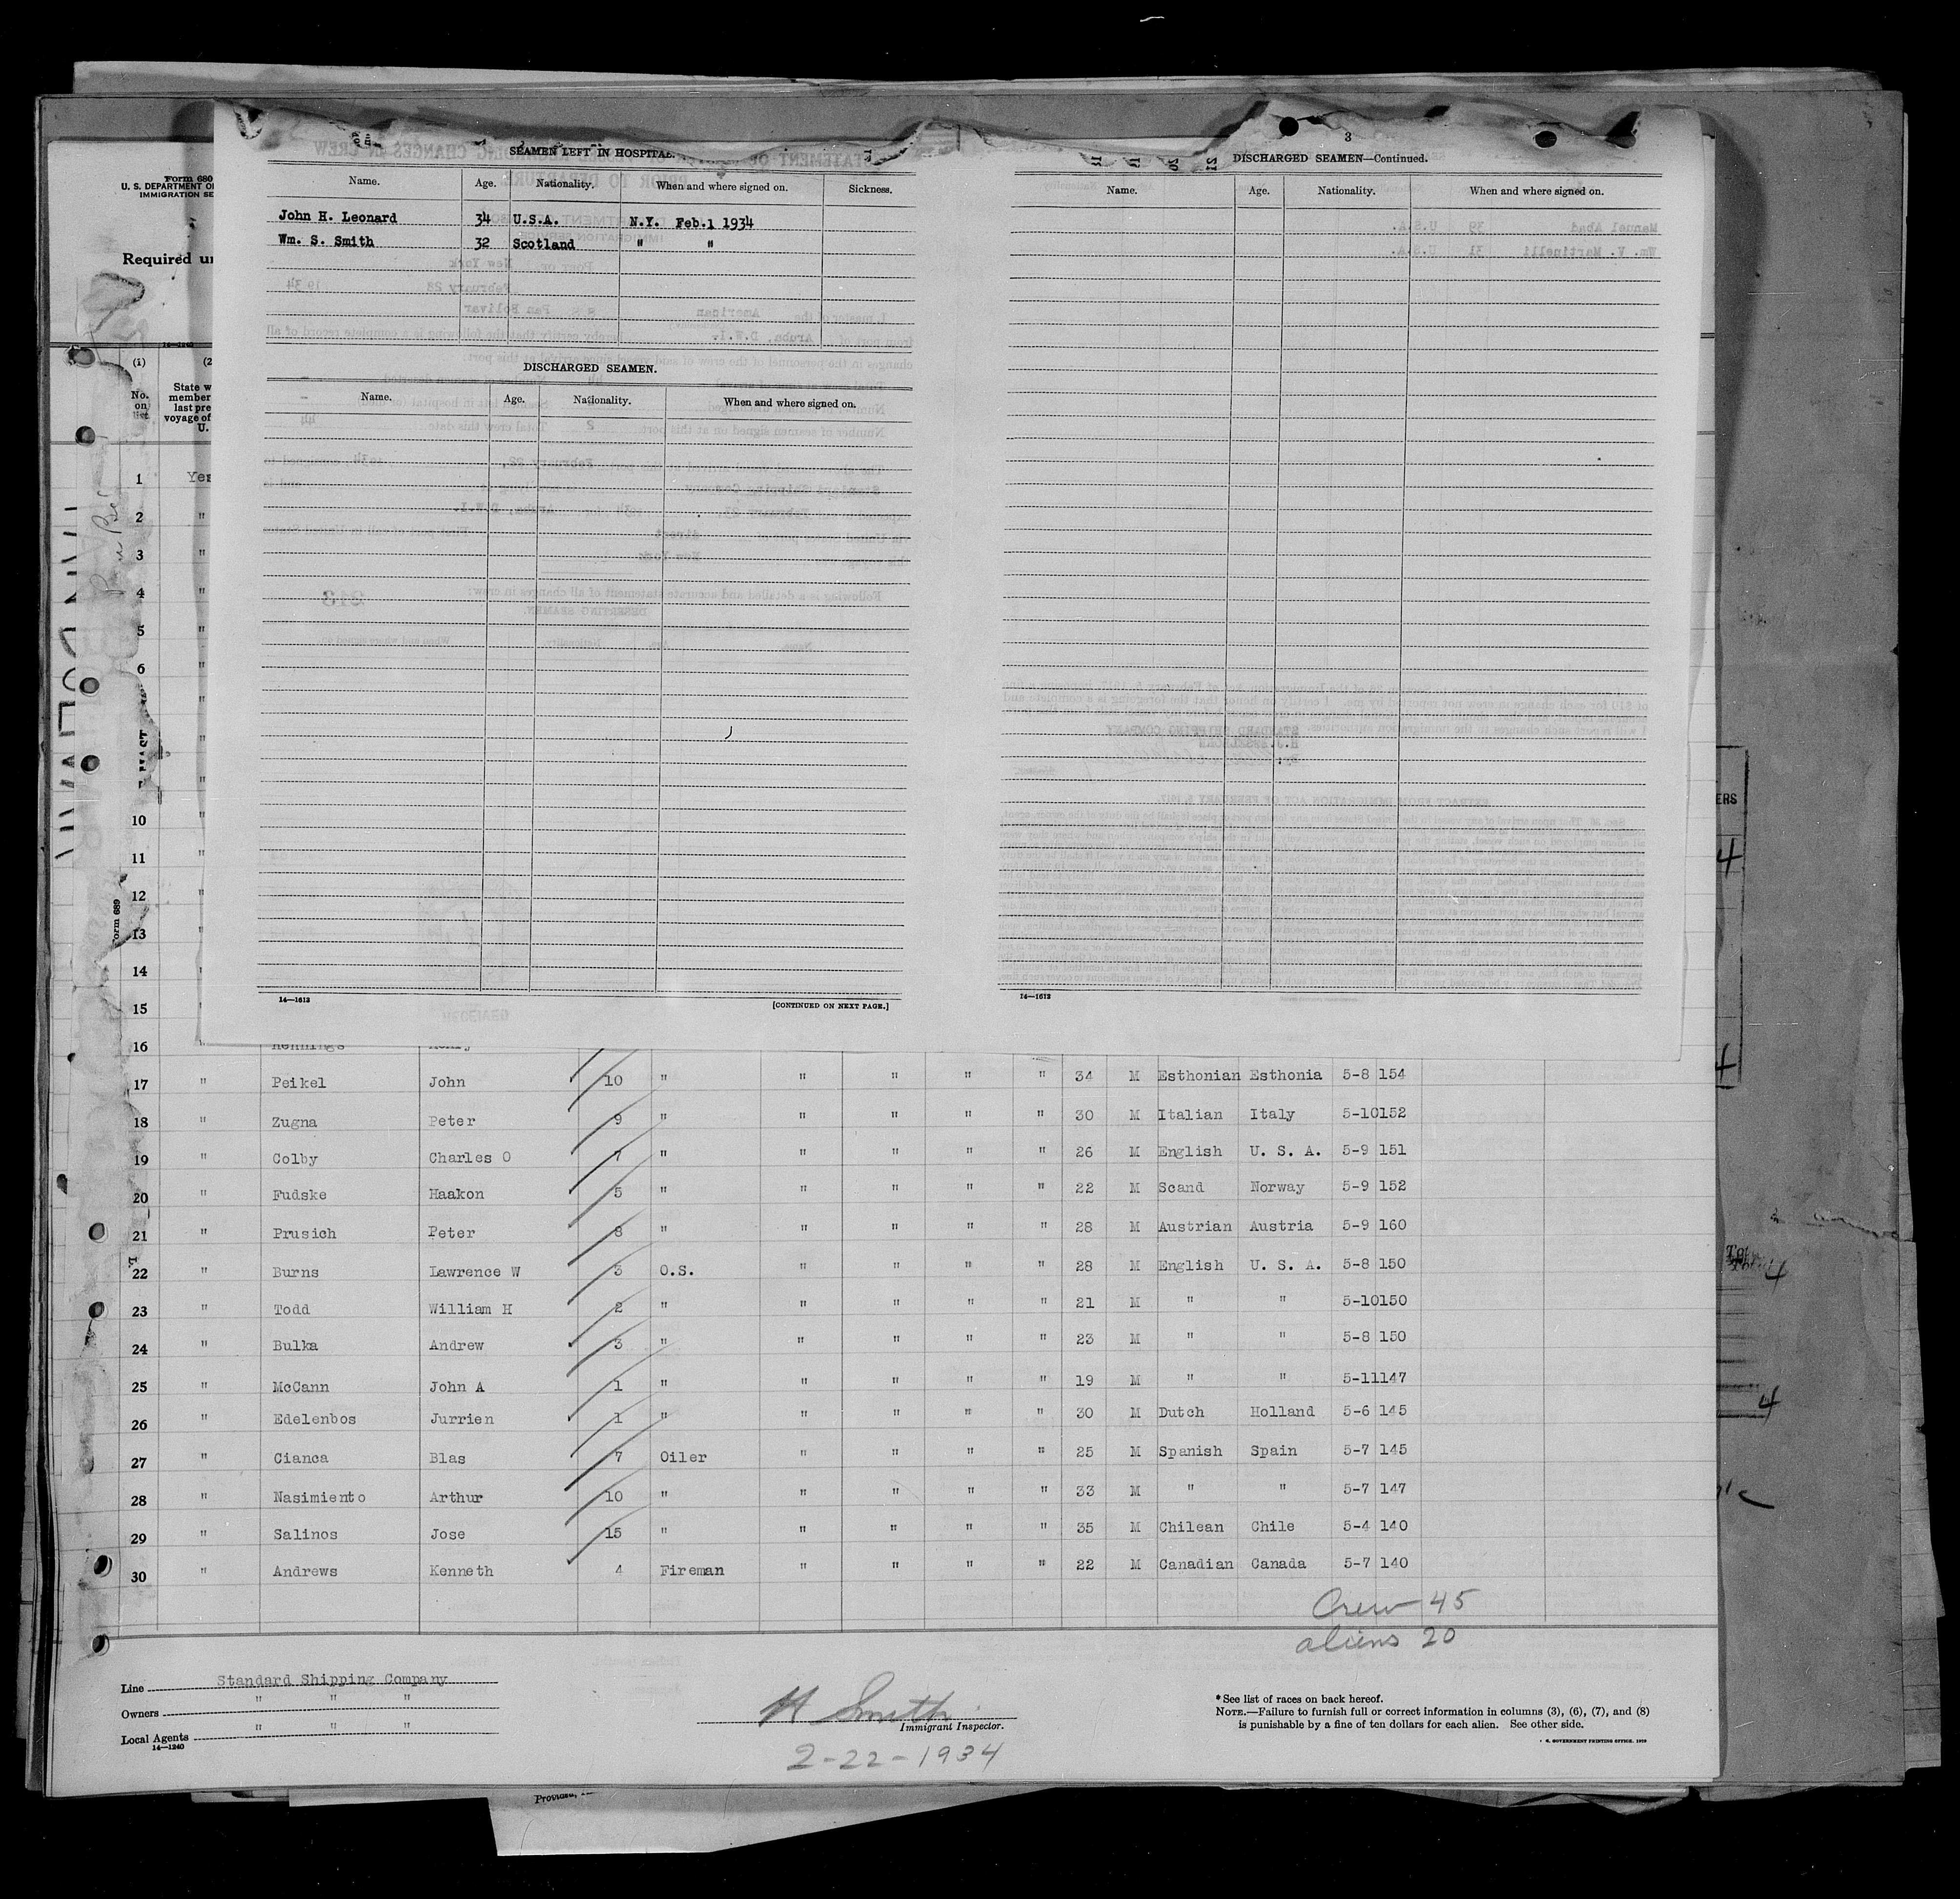 SEAMEN LEFT IN HOSPITAL.
Name. Age. Nationality. When and where signed on. Sickness.
John H. Leonard 34 U.S.A. N.Y. Feb.1 1934
Wm. S. Smith 32 Scotland " "
DISCHARGED SEAMEN.
Name. Age. Nationality. When and where signed on.
14—1613 [CONTINUED ON NEXT PAGE.]
3
DISCHARGED SEAMEN—Continued.
Name. Age. Nationality. When and where signed on.
14—1613
Form 680
U. S. DEPARTMENT OF
IMMIGRATION SE
Required un
(1) (2
No. on list
State w
member
last pre
voyage of
U.
1 Yes
2 "
3 "
4 "
5 "
6 "
10 "
11 "
12 "
13 "
14
15
Form 689
16 " Hennings Henry
17 " Peikel John 10 " " " " " 34 M Esthonian Esthonia 5-8 154
18 " Zugna Peter 9 " " " " " 30 M Italian Italy 5-10 152
19 " Colby Charles O 7 " " " " " 26 M English U. S. A. 5-9 151
20 " Fudske Haakon 5 " " " " " 22 M Scand Norway 5-9 152
21 " Prusich Peter 8 " " " " " 28 M Austrian Austria 5-9 160
22 " Burns Lawrence W 3 O.S. " " " " 28 M English U. S. A. 5-8 150
23 " Todd William H 2 " " " " " 21 M " " 5-10 150
24 " Bulka Andrew 3 " " " " " 23 M " " 5-8 150
25 " McCann John A 1 " " " " " 19 M " " 5-11 147
26 " Edelenbos Jurrien 1 " " " " " 30 M Dutch Holland 5-6 145
27 " Cianca Blas 7 Oiler " " " " 25 M Spanish Spain 5-7 145
28 " Nasimiento Arthur 10 " " " " " 33 M " " 5-7 147
29 " Salinos Jose 15 " " " " " 35 M Chilean Chile 5-4 140
30 " Andrews Kenneth 4 Fireman " " " " 22 M Canadian Canada 5-7 140
Crew 45
aliens 20
Line Standard Shipping Company
Owners " " "
Local Agents " " "
14—1240
H Smith
Immigrant Inspector.
2-22-1934
* See list of races on back hereof.
NOTE.—Failure to furnish full or correct information in columns (3), (6), (7), and (8)
is punishable by a fine of ten dollars for each alien. See other side.
GOVERNMENT PRINTING OFFICE.
ERS
4
4
4
4
Provided,